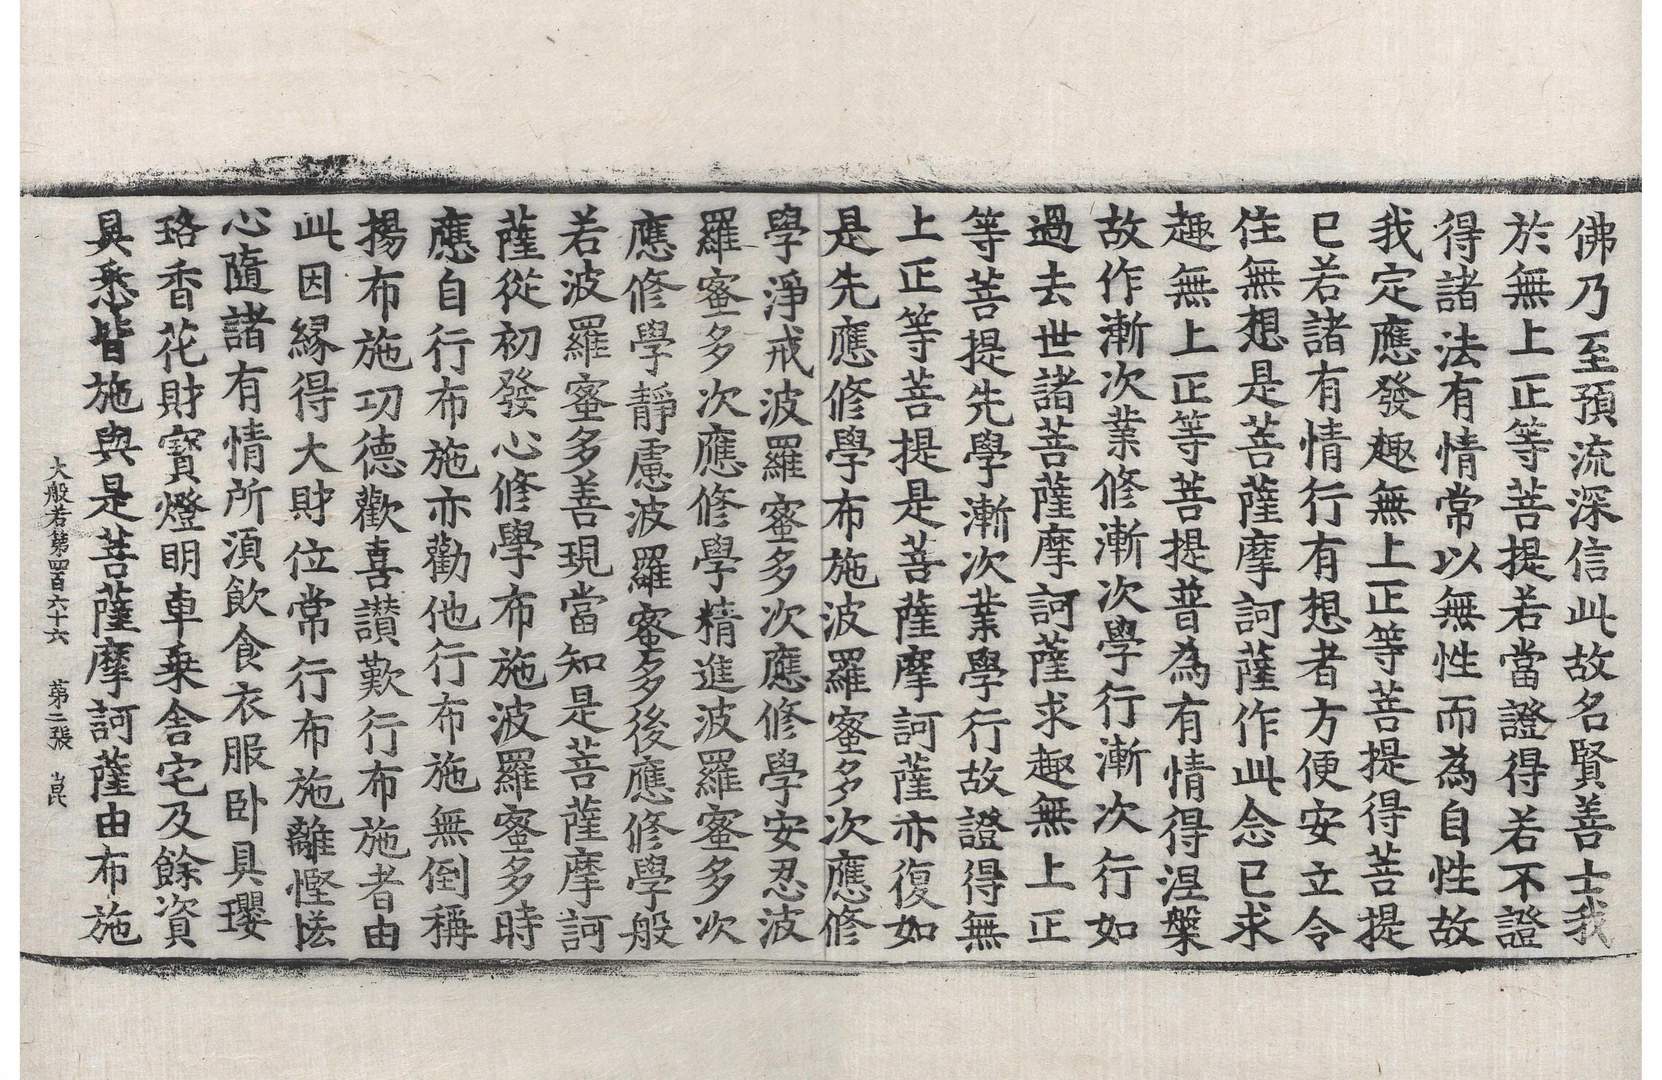 佛乃至預流深信此故名賢善士我
於無上正等菩提若當證得若不證
得諸法有情常以無性而為自性故
我定應發趣無上正等菩提得菩提
已若諸有情行有想者方便安立令
住無想是菩薩摩訶薩作此念已求
趣無上正等菩提普為有情得涅槃
故作漸次業修漸次學行漸次行如
過去世諸菩薩摩訶薩求趣無上正
等菩提先學漸次業學行故證得無
上正等菩提是菩薩摩訶薩亦復如
是先應修學布施波羅蜜多次應修
學淨戒波羅蜜多次應修學安忍波
羅蜜多次應修學精進波羅蜜多次
應修學靜慮波羅蜜多後應修學般
若波羅蜜多善現當知是菩薩摩訶
薩從初發心修學布施波羅蜜多時
應自行布施亦勸他行布施無倒稱
揚布施功德歡喜讃歎行布施者由
此因緣得大財位常行布施離慳悋
心隨諸有情所湏飲食衣服卧具瓔
珞香花財寶燈明車乗舍宅及餘資
具悉皆施與是菩薩摩訶薩由布施
大般若第四百六十六 第二張 崑